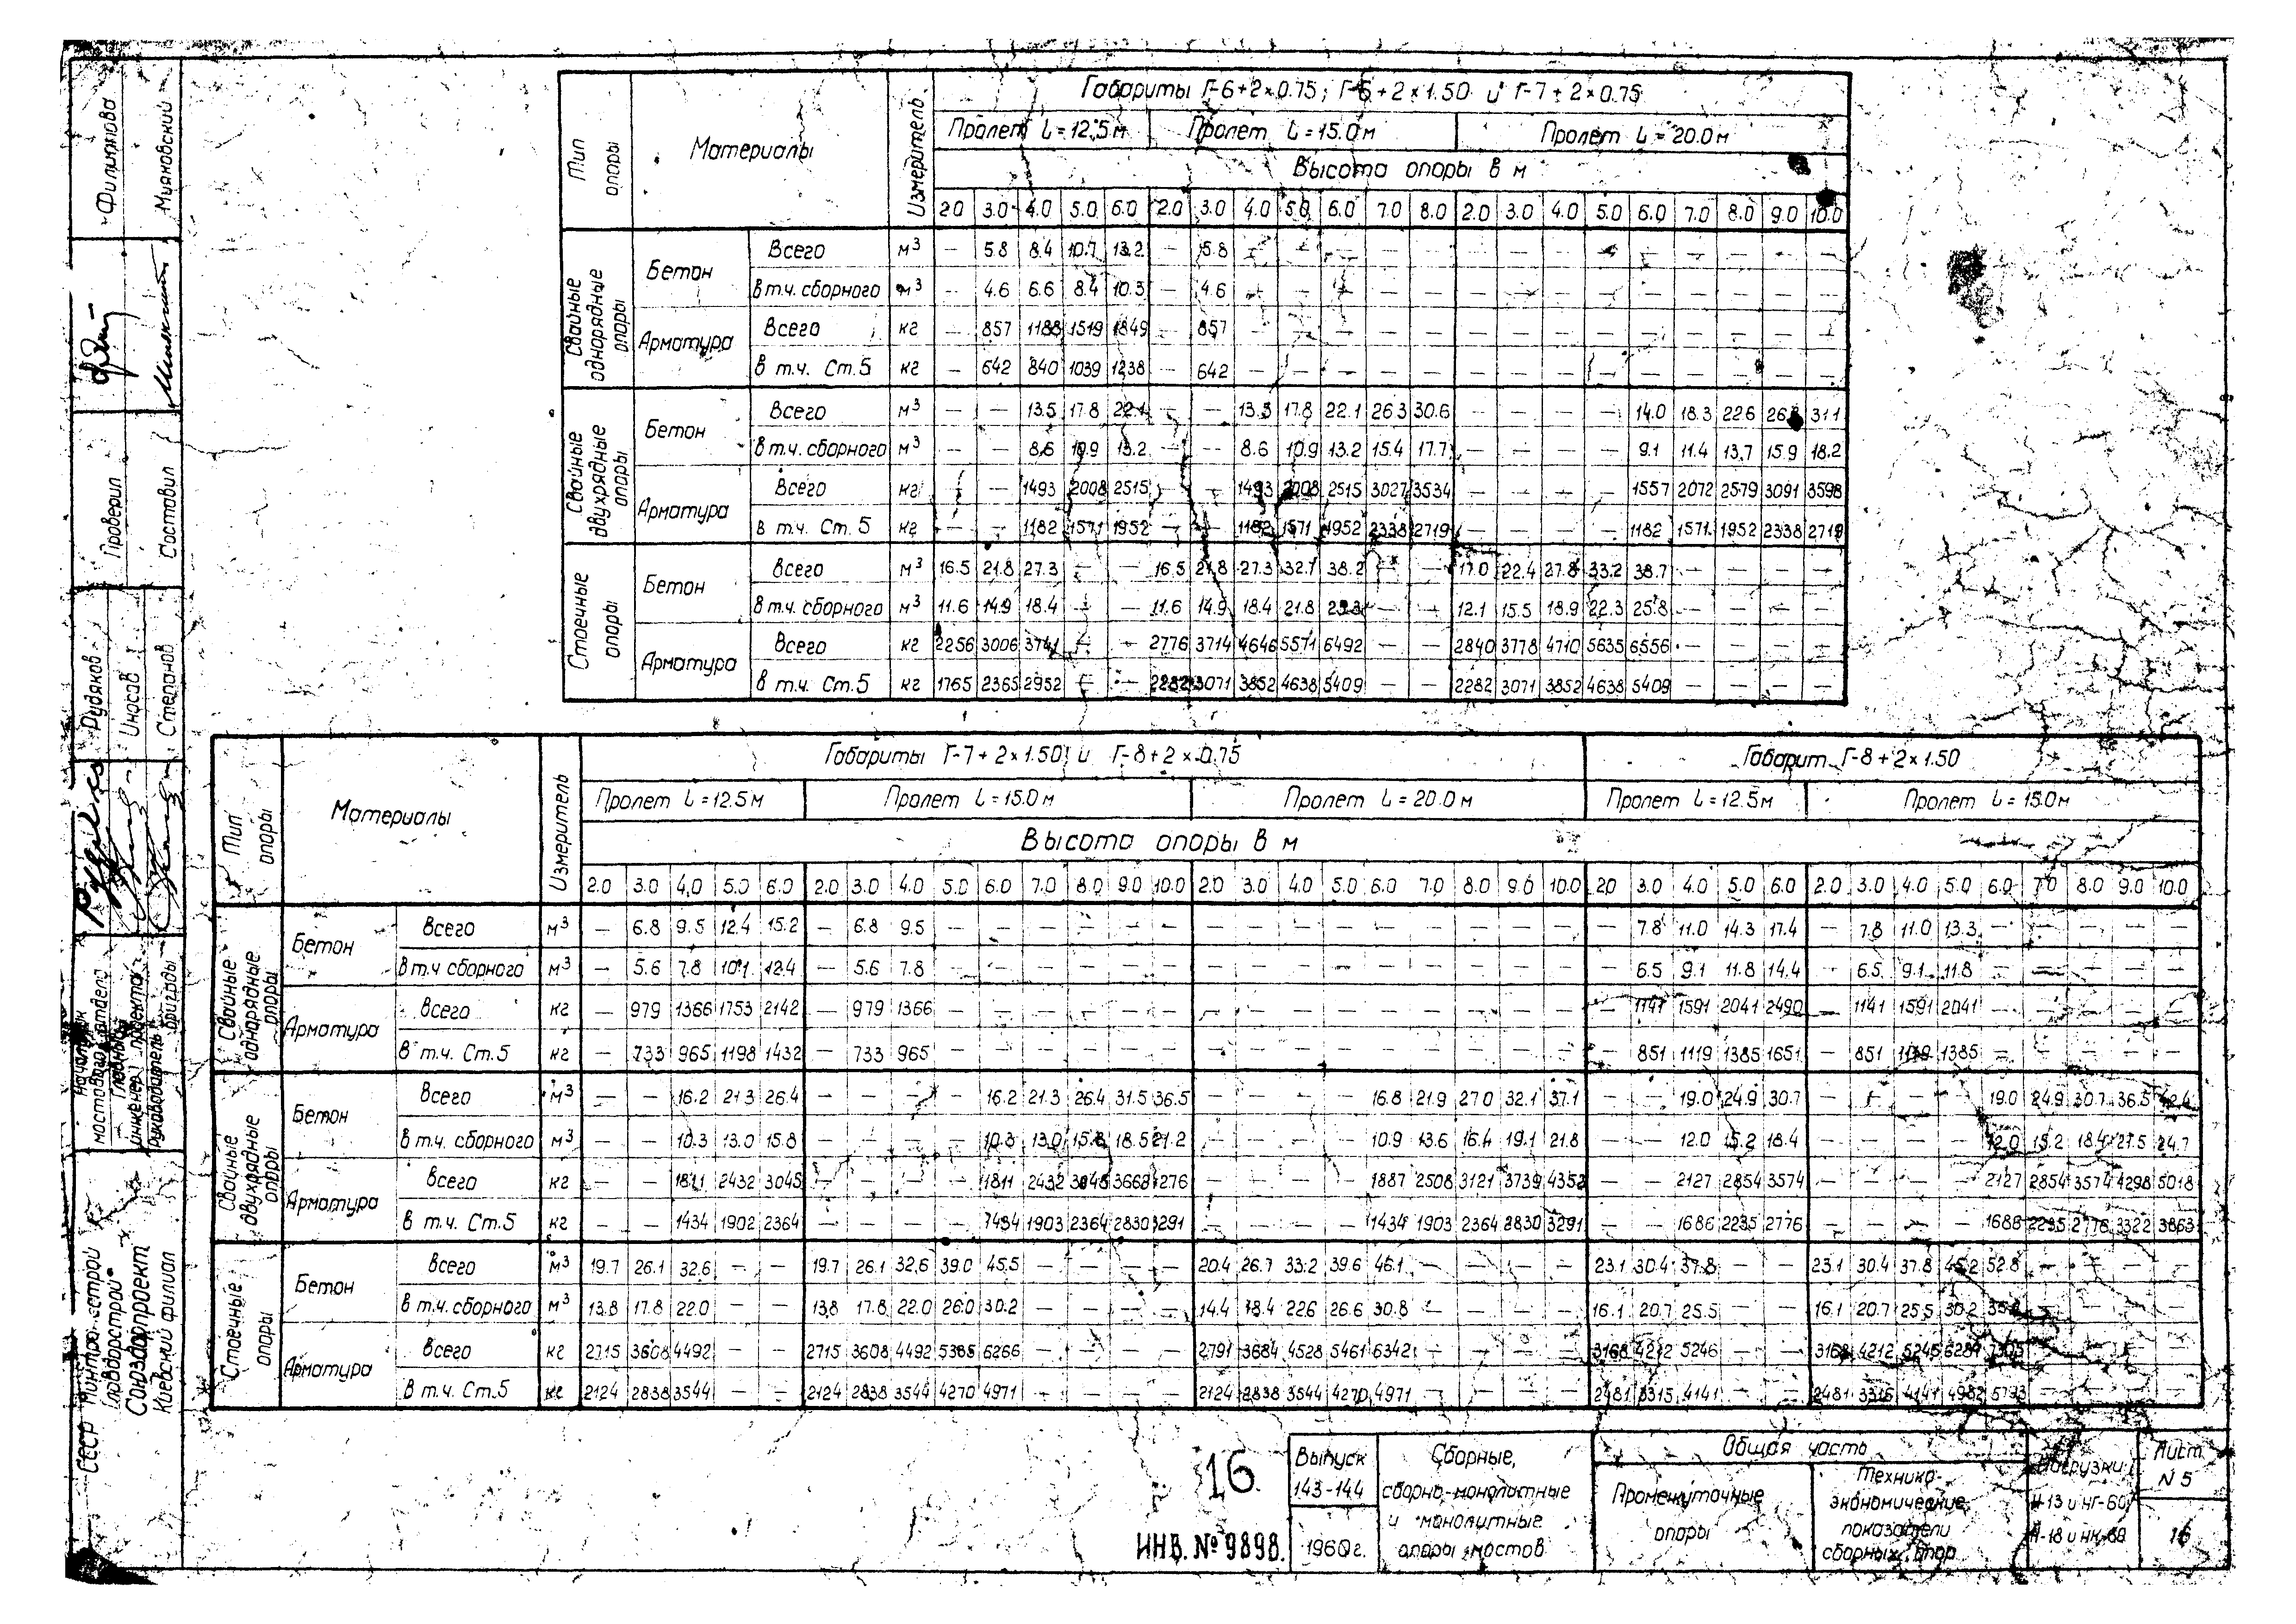 Габариты Г-6+2×0.75; Г-6+2×1.50 и Г-7+2×0.75
Тип опоры | Материалы | Измеритель | Пролет L=12.5м | Пролет L=15.0м | Пролет L=20.0м
Высота опоры в м
2.0 3.0 4.0 5.0 6.0 2.0 3.0 4.0 5.0 6.0 7.0 8.0 2.0 3.0 4.0 5.0 6.0 7.0 8.0 9.0 10.0
Свайные однорядные опоры
Бетон Всего м³ — 5.8 8.4 10.7 13.2 — 5.8 — — — — — — — — — — — — — —
в т.ч. сборного м³ — 4.6 6.6 8.4 10.3 — 4.6 — — — — — — — — — — — — — —
Арматура Всего кг — 857 1188 1519 1849 — 857 — — — — — — — — — — — — — —
в т.ч. Ст.5 кг — 642 840 1039 1238 — 642 — — — — — — — — — — — — — —
Свайные двухрядные опоры
Бетон Всего м³ — — 13.5 17.8 22.1 — — 13.5 17.8 22.1 26.3 30.6 — — — — 14.0 18.3 22.6 26.8 31.1
в т.ч. сборного м³ — — 8.6 10.9 13.2 — — 8.6 10.9 13.2 15.4 17.7 — — — — 9.1 11.4 13.7 15.9 18.2
Арматура Всего кг — — 1493 2008 2515 — — 1493 2008 2515 3027 3534 — — — — 1557 2072 2579 3091 3598
в т.ч. Ст.5 кг — — 1182 1571 1952 — — 1182 1571 1952 2338 2719 — — — — 1182 1571 1952 2338 2719
Стоечные опоры
Бетон Всего м³ 16.5 21.8 27.3 — — 16.5 21.8 27.3 32.7 38.2 — — 17.0 22.4 27.8 33.2 38.7 — — — —
в т.ч. сборного м³ 11.6 14.9 18.4 — — 11.6 14.9 18.4 21.8 25.3 — — 12.1 15.5 18.9 22.3 25.8 — — — —
Арматура Всего кг 2256 3006 3741 — — 2776 3714 4646 5571 6492 — — 2840 3778 4710 5635 6556 — — — —
в т.ч. Ст.5 кг 1765 2365 2952 — — 2282 3071 3852 4638 5409 — — 2282 3071 3852 4638 5409 — — — —
Габариты Г-7+2×1.50 и Г-8+2×0.75 | Габарит Г-8+2×1.50
Тип опоры | Материалы | Измеритель | Пролет L=12.5м | Пролет L=15.0м | Пролет L=20.0м | Пролет L=12.5м | Пролет L=15.0м
Высота опоры в м
2.0 3.0 4.0 5.0 6.0 2.0 3.0 4.0 5.0 6.0 7.0 8.0 9.0 10.0 2.0 3.0 4.0 5.0 6.0 7.0 8.0 9.0 10.0 2.0 3.0 4.0 5.0 6.0 2.0 3.0 4.0 5.0 6.0 7.0 8.0 9.0 10.0
Свайные однорядные опоры
Бетон Всего м³ — 6.8 9.5 12.4 15.2 — 6.8 9.5 — — — — — — — — — — — — — — — — 7.8 11.0 14.3 17.4 — 7.8 11.0 13.3 — — — — —
в т.ч сборного м³ — 5.6 7.8 10.1 12.4 — 5.6 7.8 — — — — — — — — — — — — — — — — 6.5 9.1 11.8 14.4 — 6.5 9.1 11.8 — — — — —
Арматура Всего кг — 979 1366 1753 2142 — 979 1366 — — — — — — — — — — — — — — — — 1141 1591 2041 2490 — 1141 1591 2041 — — — — —
в т.ч. Ст.5 кг — 733 965 1198 1432 — 733 965 — — — — — — — — — — — — — — — — 851 1119 1385 1651 — 851 1119 1385 — — — — —
Свайные двухрядные опоры
Бетон Всего м³ — — 16.2 21.3 26.4 — — — — 16.2 21.3 26.4 31.5 36.5 — — — — 16.8 21.9 27.0 32.1 37.1 — — 19.0 24.9 30.7 — — — — 19.0 24.9 30.7 36.5 42.4
в т.ч. сборного м³ — — 10.3 13.0 15.8 — — — — 10.3 13.0 15.8 18.5 21.2 — — — — 10.9 13.6 16.4 19.1 21.8 — — 12.0 15.2 18.4 — — — — 12.0 15.2 18.4 21.5 24.7
Арматура Всего кг — — 1811 2432 3045 — — — — 1811 2432 3045 3663 4276 — — — — 1887 2508 3121 3739 4352 — — 2127 2854 3574 — — — — 2127 2854 3574 4298 5018
в т.ч. Ст.5 кг — — 1434 1902 2364 — — — — 1434 1903 2364 2830 3291 — — — — 1434 1903 2364 2830 3291 — — 1686 2235 2776 — — — — 1686 2235 2776 3322 3863
Стоечные опоры
Бетон Всего м³ 19.7 26.1 32.6 — — 19.7 26.1 32.6 39.0 45.5 — — — — 20.4 26.7 33.2 39.6 46.1 — — — — 23.1 30.4 37.8 — — 23.1 30.4 37.8 45.2 52.8 — — — —
в т.ч. сборного м³ 13.8 17.8 22.0 — — 13.8 17.8 22.0 26.0 30.2 — — — — 14.4 18.4 22.6 26.6 30.8 — — — — 16.1 20.7 25.5 — — 16.1 20.7 25.5 30.2 — — — —
Арматура Всего кг 2715 3608 4492 — — 2715 3608 4492 5385 6266 — — — — 2791 3684 4528 5461 6342 — — — — 3168 4212 5246 — — 3168 4212 5246 6284 — — — —
в т.ч. Ст.5 кг 2124 2838 3544 — — 2124 2838 3544 4270 4971 — — — — 2124 2838 3544 4270 4971 — — — — 2481 3315 4141 — — 2481 3316 4141 4982 5793 — — — —
Филиппова
Мияновский
Проверил
Составил
Рудяков
Иносов
Степанов
Начальник мостового отдела
Главный инженер проекта
Руководитель бригады
СССР Минтрансстрой
Главдорстрой
Союздорпроект
Киевский филиал
16
ИНВ. № 9898.
Выпуск 143-144
1960г.
Сборные,
сборно-монолитные
и монолитные
опоры мостов
Общая часть
Промежуточные
опоры
Технико-
экономические
показатели
сборных опор
Нагрузки
Н-13 и НГ-60
Н-18 и НК-80
Лист
N 5
16